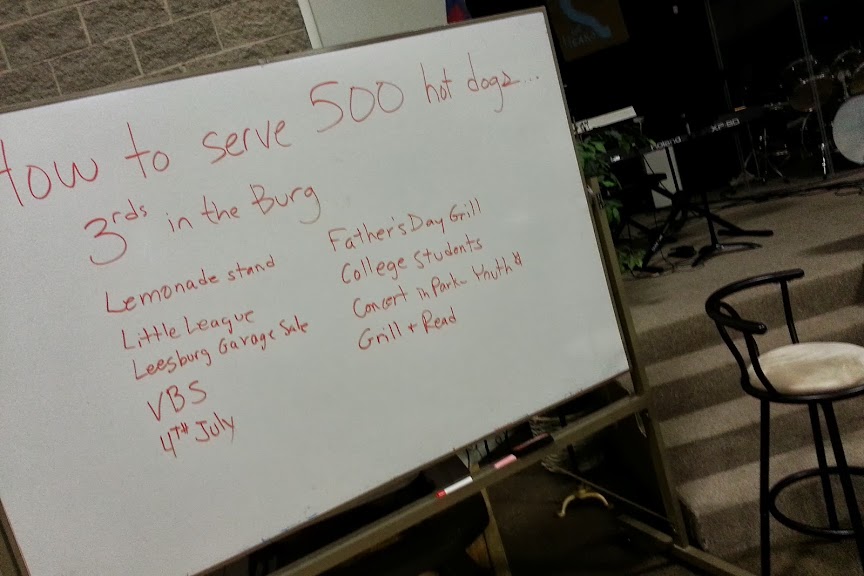 How to serve 500 hot dogs...
3rds in the Burg
Lemonade stand
Little League
Leesburg Garage Sale
VBS
4TH July
Father's Day Grill
College Students
Concert in Park -
Grill + Read
Roland XP-80